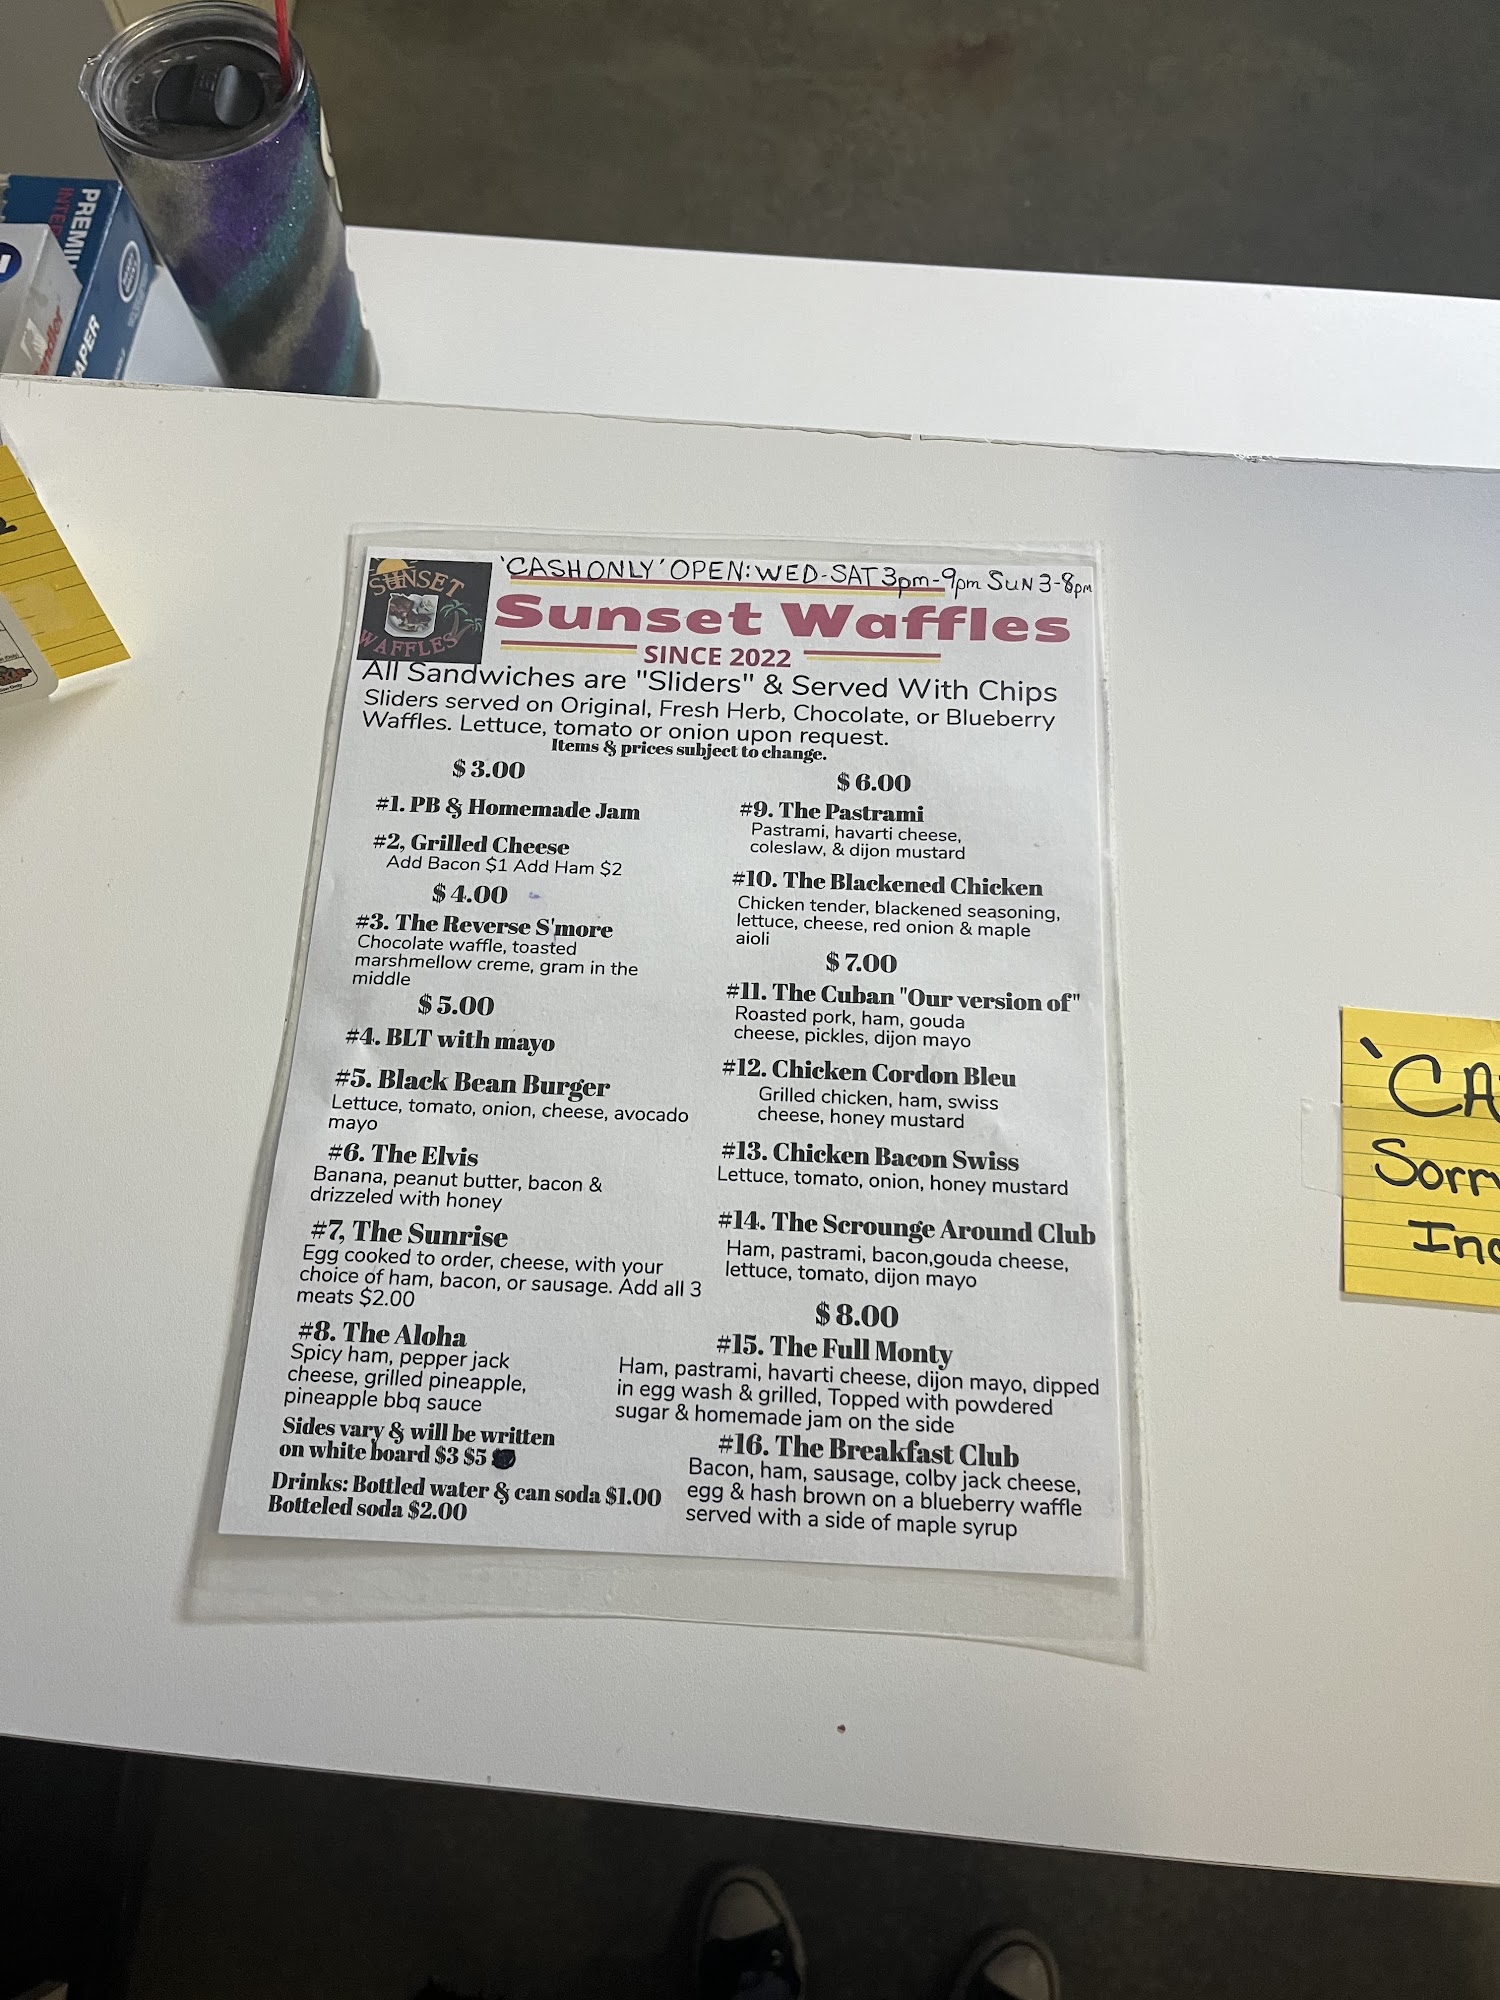 PREMIU
INTE
APER
SUNSET
WAFFLES
'CASH ONLY' OPEN: WED-SAT 3pm-9pm SUN 3-8pm
Sunset Waffles
SINCE 2022
All Sandwiches are "Sliders" & Served With Chips
Sliders served on Original, Fresh Herb, Chocolate, or Blueberry
Waffles. Lettuce, tomato or onion upon request.
Items & prices subject to change.
$3.00
#1. PB & Homemade Jam
#2, Grilled Cheese
Add Bacon $1 Add Ham $2
$4.00
#3. The Reverse S'more
Chocolate waffle, toasted
marshmellow creme, gram in the
middle
$5.00
#4. BLT with mayo
#5. Black Bean Burger
Lettuce, tomato, onion, cheese, avocado
mayo
#6. The Elvis
Banana, peanut butter, bacon &
drizzeled with honey
#7, The Sunrise
Egg cooked to order, cheese, with your
choice of ham, bacon, or sausage. Add all 3
meats $2.00
#8. The Aloha
Spicy ham, pepper jack
cheese, grilled pineapple,
pineapple bbq sauce
Sides vary & will be written
on white board $3 $5
Drinks: Bottled water & can soda $1.00
Botteled soda $2.00
$6.00
#9. The Pastrami
Pastrami, havarti cheese,
coleslaw, & dijon mustard
#10. The Blackened Chicken
Chicken tender, blackened seasoning,
lettuce, cheese, red onion & maple
aioli
$7.00
#11. The Cuban "Our version of"
Roasted pork, ham, gouda
cheese, pickles, dijon mayo
#12. Chicken Cordon Bleu
Grilled chicken, ham, swiss
cheese, honey mustard
#13. Chicken Bacon Swiss
Lettuce, tomato, onion, honey mustard
#14. The Scrounge Around Club
Ham, pastrami, bacon,gouda cheese,
lettuce, tomato, dijon mayo
$8.00
#15. The Full Monty
Ham, pastrami, havarti cheese, dijon mayo, dipped
in egg wash & grilled, Topped with powdered
sugar & homemade jam on the side
#16. The Breakfast Club
Bacon, ham, sausage, colby jack cheese,
egg & hash brown on a blueberry waffle
served with a side of maple syrup
'CA
Sorr
Inc